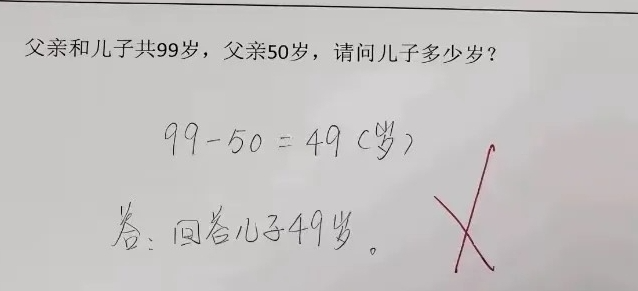 父亲和儿子共99岁，父亲50岁，请问儿子多少岁？
99-50=49（岁）
答：回答儿子49岁。